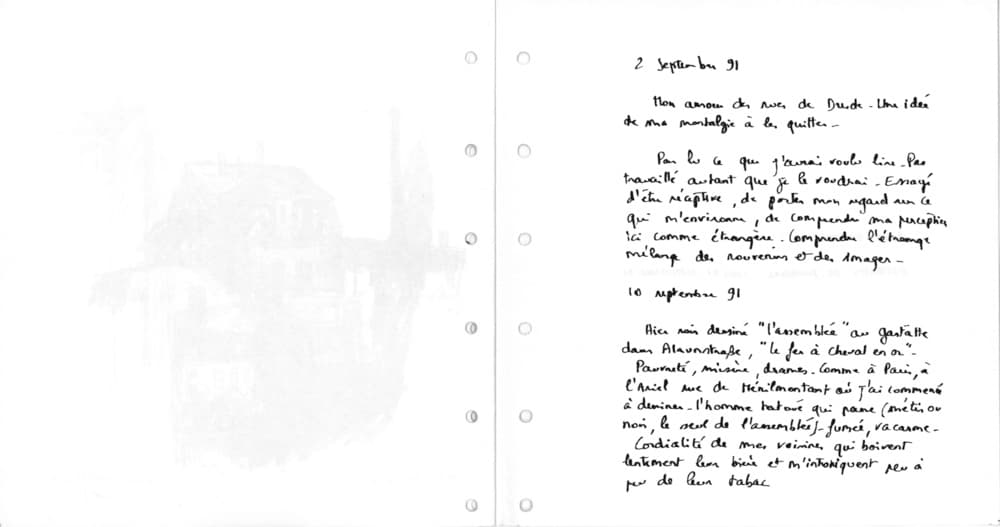 2 Septembre 91
Mon amour des rues de Dresde - Une idée
de ma nostalgie à les quitter -
Pas lu ce que j'aurais voulu lire - Pas
travaillé autant que je le voudrai - Essayé
d'être réceptive, de porter mon regard sur ce
qui m'environne, de comprendre ma perception
ici comme étrangère. Comprendre l'étrange
mélange des souvenirs et des images -
10 septembre 91
Hier soir dessiné "l'assemblée" au gastätte
dans Alaunstraße, "le fer à cheval en or" -
Pauvreté, misère, drames - Comme à Paris, à
l'Ariel rue de Ménilmontant où j'ai commencé
à dessiner - l'homme tatoué qui passe (métis ou
noir, le seul de l'assemblée) - fumée, vacarme -
Cordialité de mes voisins qui boivent
lentement leur bière et m'intoxiquent peu à
peu de leur tabac